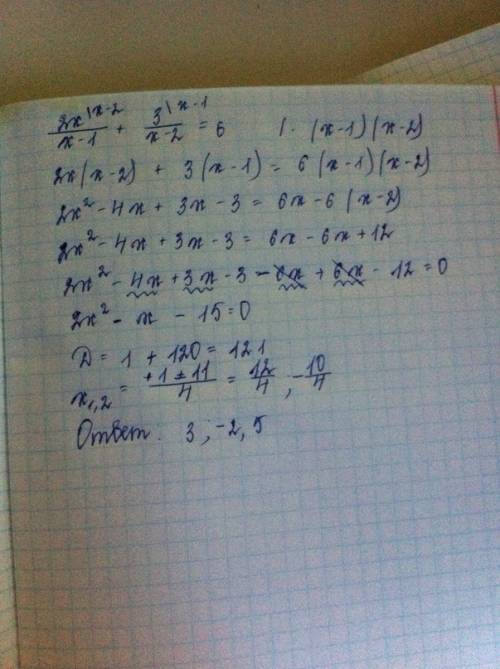 2x\x-2 / x-1 + 3\x-1 / x-2 = 6 | · (x-1)(x-2)
2x(x-2) + 3(x-1) = 6(x-1)(x-2)
2x² - 4x + 3x - 3 = 6x - 6(x-2)
2x² - 4x + 3x - 3 = 6x - 6x + 12
2x² - 4x + 3x - 3 - 6x + 6x - 12 = 0
2x² - x - 15 = 0
D = 1 + 120 = 121
x1,2 = +1 ± 11 / 4 = 12/4 , -10/4
Ответ: 3 ; -2,5